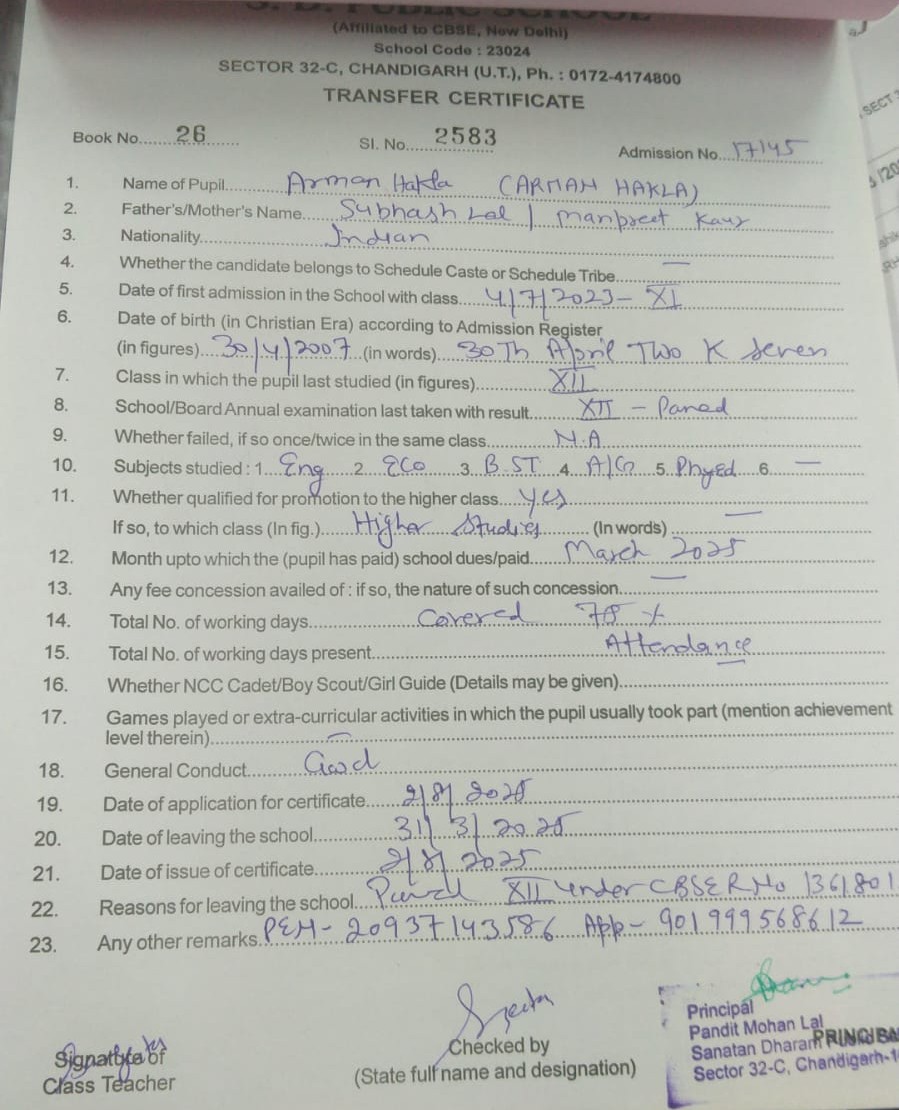 S. D. PUBLIC SCHOOL
(Affiliated to CBSE, New Delhi)
School Code : 23024
SECTOR 32-C, CHANDIGARH (U.T.), Ph. : 0172-4174800
TRANSFER CERTIFICATE
Book No. 26 Sl. No. 2583 Admission No. 17145
1. Name of Pupil Arman Hakla (ARMAN HAKLA)
2. Father's/Mother's Name Subhash Lal / Manpreet Kaur
3. Nationality Indian
4. Whether the candidate belongs to Schedule Caste or Schedule Tribe —
5. Date of first admission in the School with class 4/7/2023 - XI
6. Date of birth (in Christian Era) according to Admission Register
(in figures) 30/4/2007 (in words) 30Th April Two K Seven
7. Class in which the pupil last studied (in figures) XII
8. School/Board Annual examination last taken with result XII - Passed
9. Whether failed, if so once/twice in the same class N.A
10. Subjects studied : 1 Eng 2 Eco 3. B.ST 4. A/C 5. Phyed 6. —
11. Whether qualified for promotion to the higher class Yes
If so, to which class (In fig.) Higher Studies (In words) —
12. Month upto which the (pupil has paid) school dues/paid March 2025
13. Any fee concession availed of : if so, the nature of such concession —
14. Total No. of working days Covered 78 %
15. Total No. of working days present Attendance
16. Whether NCC Cadet/Boy Scout/Girl Guide (Details may be given) —
17. Games played or extra-curricular activities in which the pupil usually took part (mention achievement
level therein) —
18. General Conduct Good
19. Date of application for certificate 2/8/2025
20. Date of leaving the school 31/3/2025
21. Date of issue of certificate 2/8/2025
22. Reasons for leaving the school Passed XII under CBSE RNo 1361801
23. Any other remarks PEN- 20937143586 App- 901999568612
Signature of
Class Teacher
Checked by
(State full name and designation)
Principal
Pandit Mohan Lal
Sanatan Dharam
Sector 32-C, Chandigarh-1
SECT